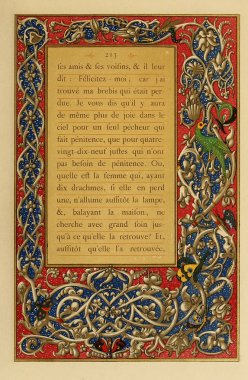 213
ses amis & ses voisins, & il leur
dit : Félicitez-moi, car j'ai
trouvé ma brebis qui était per-
due. Je vous dis qu'il y aura
de même plus de joie dans le
ciel pour un seul pécheur qui
fait pénitence, que pour quatre-
vingt-dix-neuf justes qui n'ont
pas besoin de pénitence. Ou,
quelle est la femme qui, ayant
dix drachmes, si elle en perd
une, n'allume aussitôt la lampe,
&, balayant la maison, ne
cherche avec grand soin jus-
qu'à ce qu'elle la retrouve? Et,
aussitôt qu'elle l'a retrouvée,